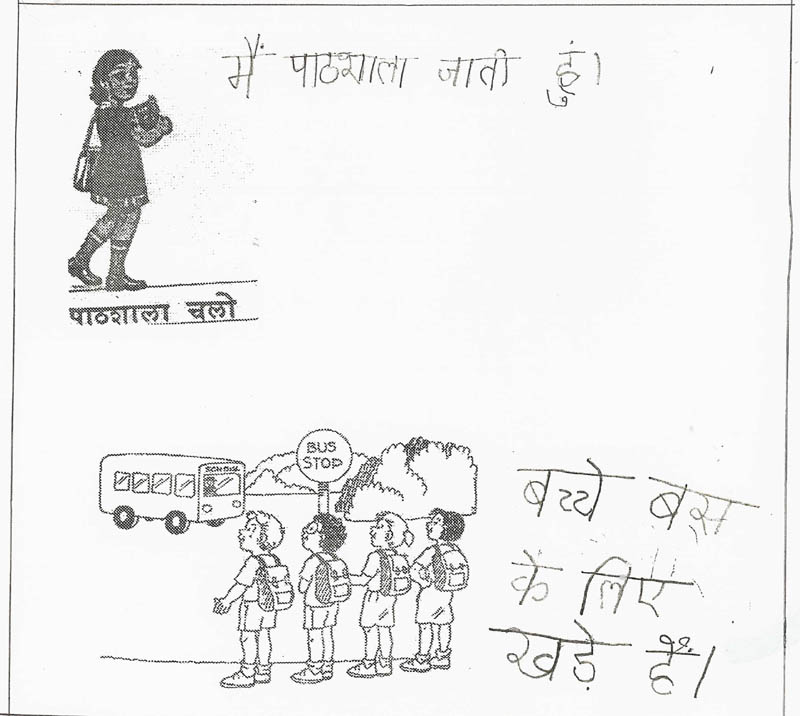 मैं पाठशाला जाती हुं।
पाठशाला चलो
SCHOOL
BUS
STOP
बच्चे बस
के लिए
खड़े हैं।